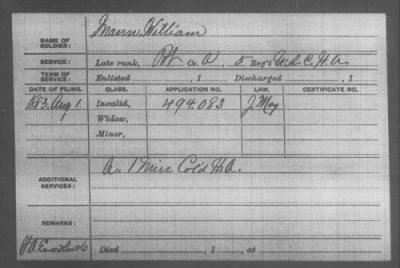 NAME OF SOLDIER: Mann, William
SERVICE: Late rank, Pvt Co. A, 5 Reg't U.S.C.H.A.
TERM OF SERVICE: Enlisted , 1 Discharged , 1
DATE OF FILING. CLASS. APPLICATION NO. LAW. CERTIFICATE NO.
1883, Aug 1 Invalid, 494.083
Widow,
Minor,
ADDITIONAL SERVICES: A. 1 Miss Cold H.A.
REMARKS:
Died , 1 , at